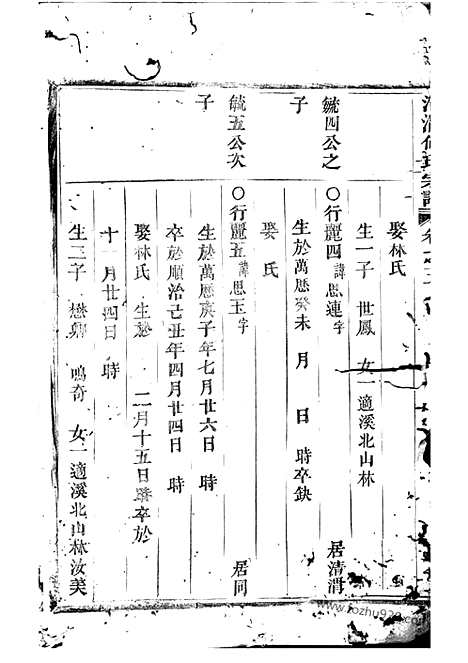 娶林氏
生一子 世鳳 女一適溪北山林
毓四公之子
○行麗四諱思連字 居清渭
生於萬曆癸未 月 日 時卒缺
娶 氏
毓五公次子
○行麗五諱思玉字 居同
生於萬曆庚子年七月廿六日 時
卒於順治己丑年四月廿四日 時
娶林氏 生於 二月十五日 時卒於
十 月廿四日 時
生二子 懋卿 鳴奇 女一適溪北山林汝美
www.fozhu920.com